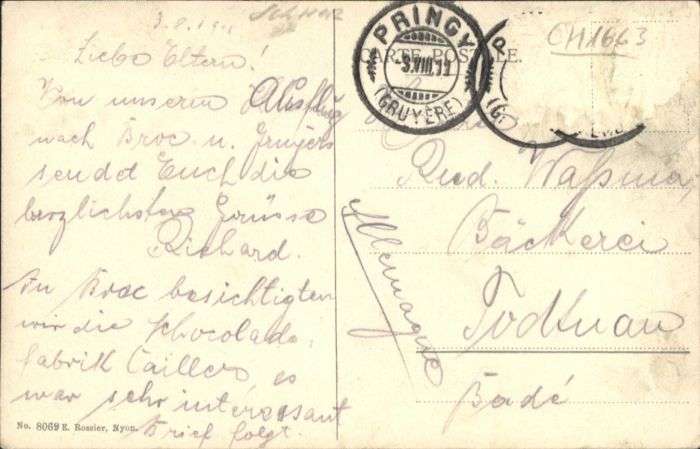 3.8.1911
Schweiz
CH1663
Liebe Eltern!
Von unserem Ausflug
nach Broc u. Gruyers
sendet Euch die
herzlichsten Grüsse
Richard.
In Broc besichtigten
wir die Schocolade-
fabrik Caillers es
war sehr intéressant
Brief folgt.
No. 8069 E. Rossier, Nyon.
CARTE POSTALE.
PRINGY
-3.VIII.11
(GRUYÈRE)
P
(G
Rud. Waßmer
Bäckerei
Todtnau
Badé
Allemagne